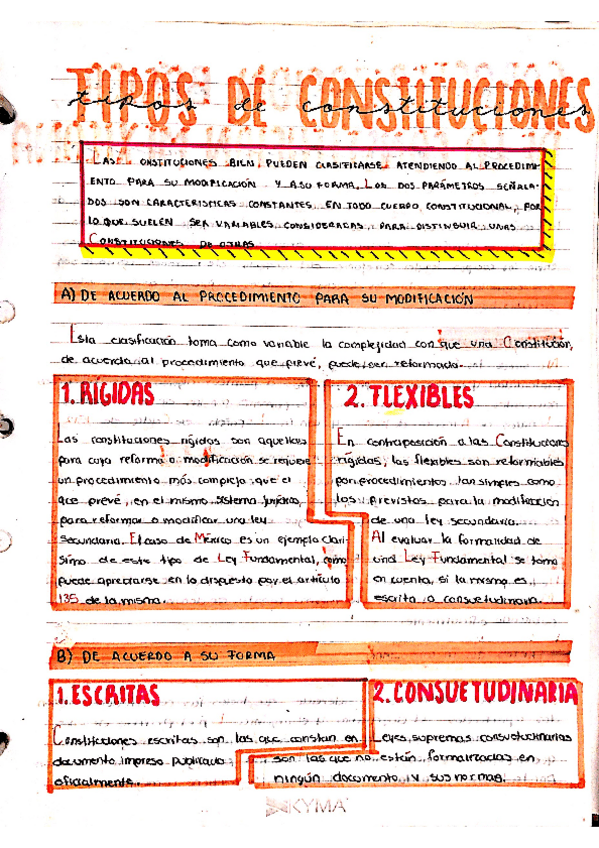 TIPOS DE CONSTITUCIONES
tipos de constituciones
LAS CONSTITUCIONES BIEN PUEDEN CLASIFICARSE ATENDIENDO AL PROCEDIMI-
ENTO PARA SU MODIFICACIÓN Y A SU FORMA. LOS DOS PARÁMETROS SEÑALA-
DOS SON CARACTERISTICAS CONSTANTES EN TODO CUERPO CONSTITUCIONAL, POR
LO QUE SUELEN SER VARIABLES CONSIDERADAS PARA DISTINGUIR UNAS
CONSTITUCIONES DE OTRAS
A) DE ACUERDO AL PROCEDIMIENTO PARA SU MODIFICACIÓN
Esta clasificación toma como variable la complejidad con que una Constitución,
de acuerdo al procedimiento que prevé, puede ser reformada.
1. RÍGIDAS
Las constituciones rígidas son aquellas
para cuya reforma o modificación se requiere
un procedimiento más complejo que el
que prevé, en el mismo sistema jurídico,
para reformar o modificar una ley
secundaria. El caso de México es un ejemplo clarí-
simo de este tipo de Ley Fundamental, como
puede apreciarse en lo dispuesto por el artículo
135 de la misma.
2. FLEXIBLES
En contraposición a las Constituciones
rígidas, las flexibles son reformables
por procedimientos tan simples como
los previstos para la modificación
de una ley secundaria.
Al evaluar la formalidad de
una Ley Fundamental se toma
en cuenta, si la misma es
escrita o consuetudinaria.
B) DE ACUERDO A SU FORMA
1. ESCRITAS
Constituciones escritas son las que constan en
documento impreso publicado
oficialmente.
2. CONSUETUDINARIA
Leyes supremas consuetudinarias
son las que no están formalizadas en
ningún documento, y sus normas.
KYMA